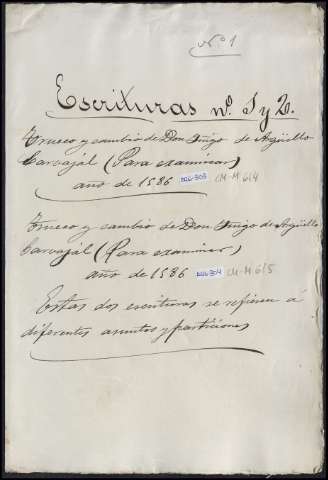 Nº 1
Escrituras nº. 1 y 2.
Trueco y cambio de Don Iñigo de Argüello
Carvajál (Para examinar)
año de 1586 006-303 CM-M 614
Trueco y cambio de Don Iñigo de Argüello
Carvajál (Para examinar)
año de 1586 006-304 CM-M 615
Estas dos escrituras se refieren á
diferentes asuntos y particiones